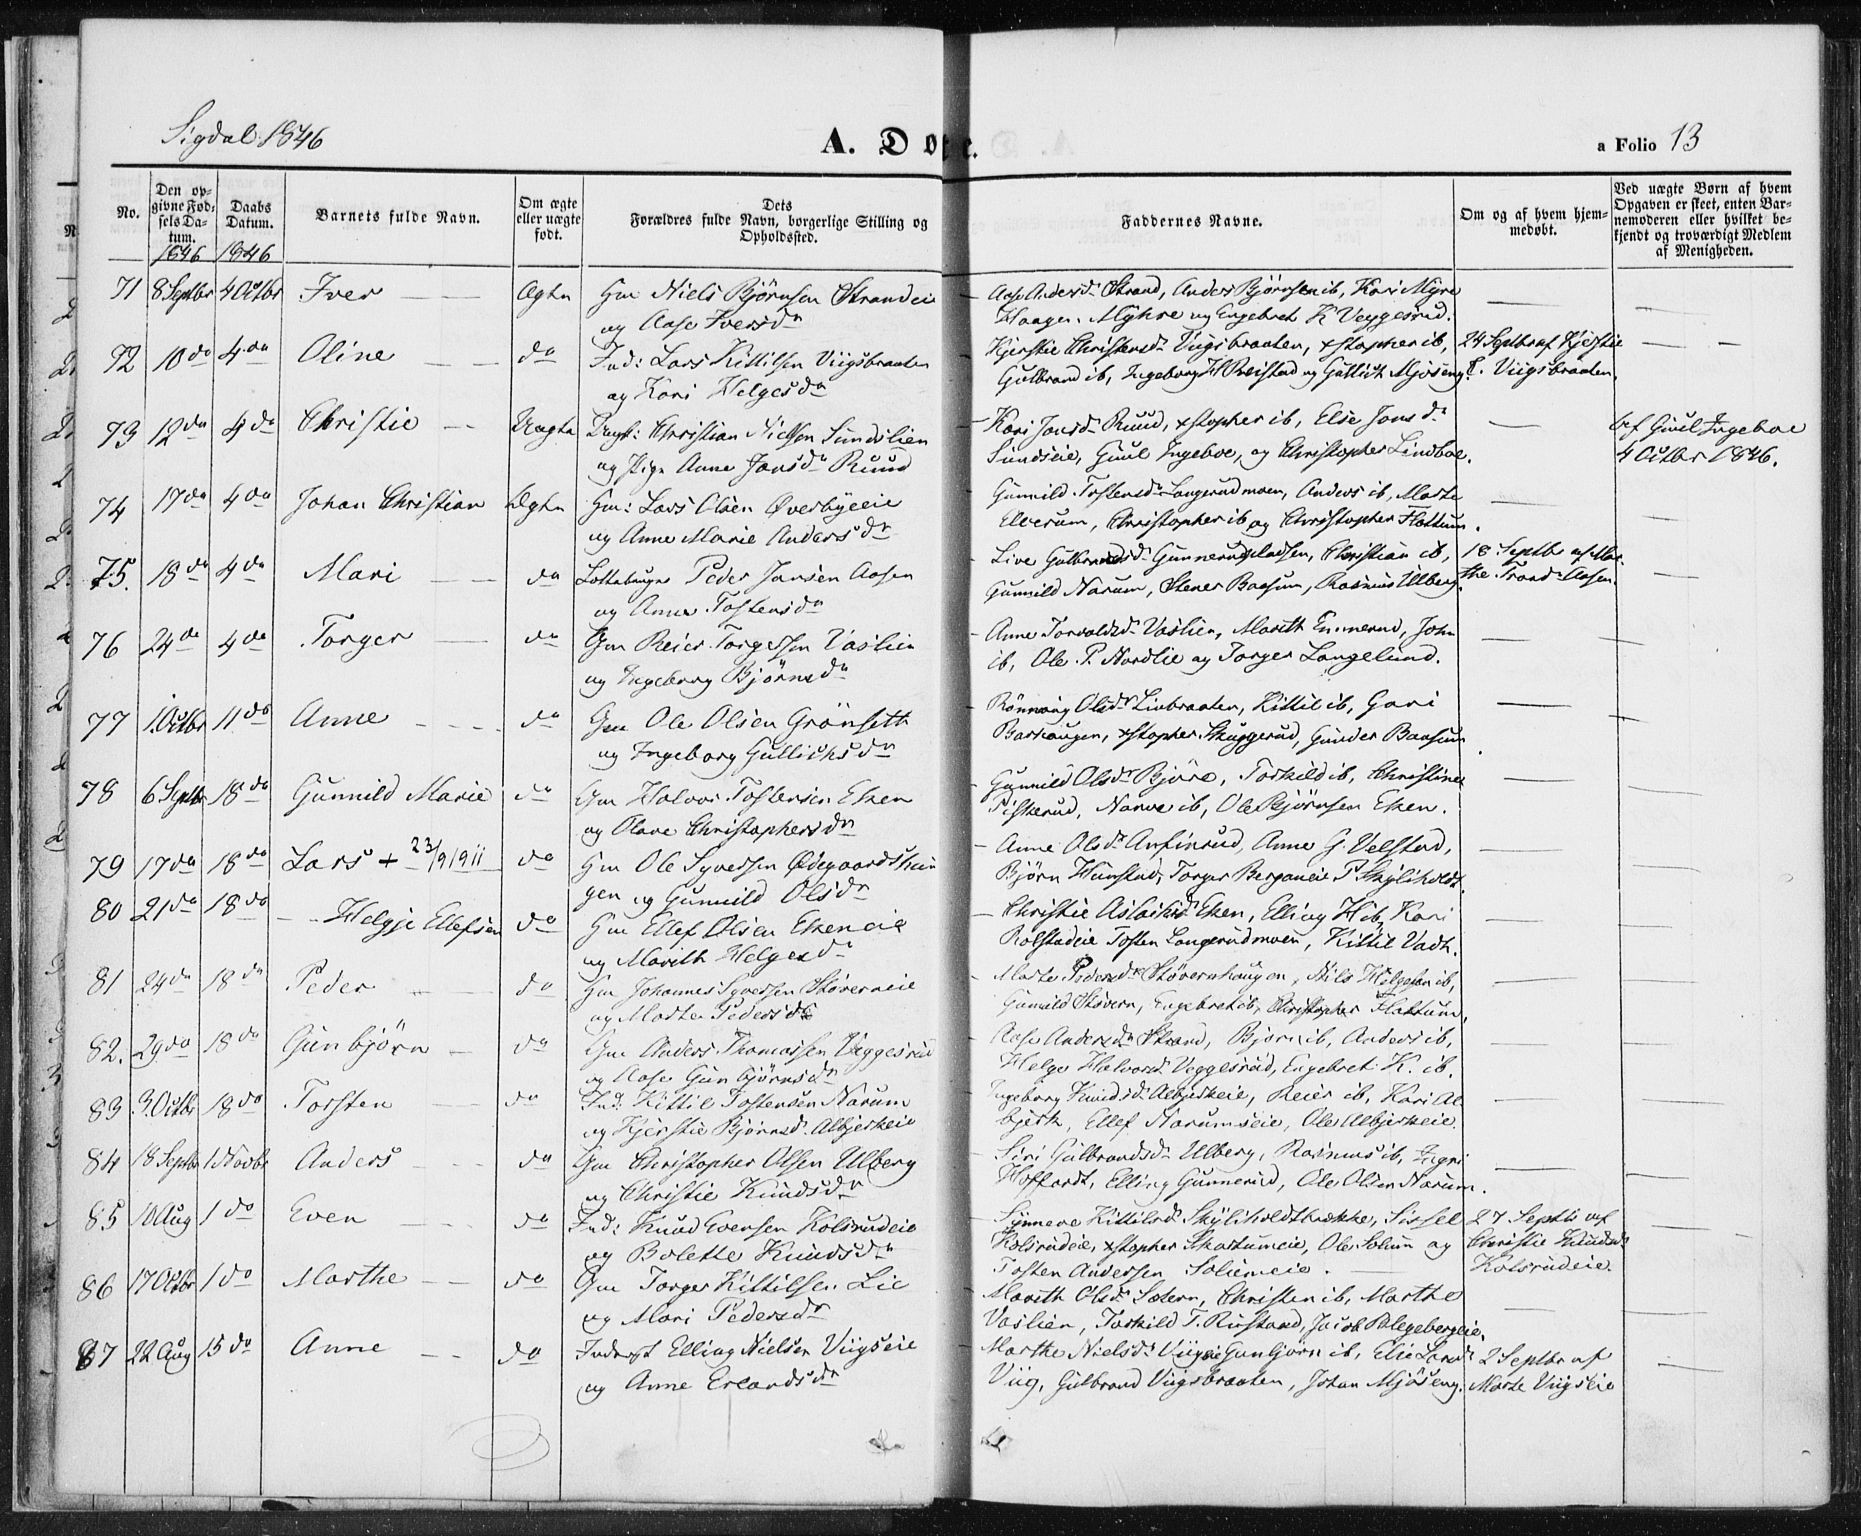 Sigdal 1846
A. Døpte.
a Folio 13
No.
Den opgivne Fødsels Datum.
Daabs Datum.
Barnets fulde Navn.
Om ægte eller uægte født.
Forældres fulde Navn, borgerlige Stilling og Dets Opholdssted.
Faddernes Navne.
Om og af hvem hjemmedøbt.
Ved uægte Børn af hvem Opgaven er skeet, enten Barnemoderen eller hvilket bekjendt og troværdigt Medlem af Menigheden.
1846 1846
71 8 Septbr 4 Octbr Iver Ægte Gm Niels Bjørnsen Strandeie — Aase Andersd. Strand, Anders Bjørnsen ib, Kari Myre
og Aase Iversdr Haagen Myhre og Engebret K Veggesrud.
72 10 do 4 do Oline do Ind: Lars Kittilsen Viigsbraaten — Kjerstie Christensd. Viigsbraaten, xstopher ib, 24 Septbr af Kjerstie
og Kari Helgesdr Gulbrand ib, Ingeborg H Reistad og Gullich Mjøseng. C. Viigsbraaten.
73 12 do 4 do Christie Uægte Ungk: Christian Nielsen Sundslien — Kari Jonsd. Ruud, xstopher ib, Else Jonsdr — af Guul Ingeboe
og Pige Anne Jonsdr Ruud Sundseie, Guul Ingeboe, og Christopher Lindboe. 4 Octbr 1846.
74 17 do 4 do Johan Christian Ægte Gm: Lars Olsen Øverbyeeie Gunnild Tostensd. Langerudmoen, Anders ib, Marte
og Anne Marie Andersdr Elverum, Christopher ib og Christopher Flattum.
75. 18 do 4 do Mari do Peder Jansen Aasen — Live Gulbrandsd. Gunnerudpladsen, Christian ib, 18 Septbr af Mar-
og Anne Tostensdr Gunnild Narum, Stener Baasum, Rasmus Ulberg. the Trond. Aasen.
76 24 do 4 do Torger do Gm Reier Torgersen Vaslien — Anne Torvaldsd. Vaslien, Marith Ennerud, John
og Ingeborg Bjørnsdr ib, Ole P. Nordlie og Torger Langelund.
77 1 Octbr 11 do Anne do Gm Ole Olsen Grønseth — Rønnaug Olsd. Liubraaten, Kittil ib, Gari
og Ingeborg Gullichsdr Barhaugen, xstopher Skuggerud, Gunder Baasum.
78 6 Septbr 18 do Gunnild Marie do Gm Halvor Tostensen Eken — Gunnild Olsdr Bjøre, Torkild ib, Christine
og Olave Christophersdr Fiskerud, Narve ib, Ole Bjørnsen Eken.
79 17 do 18 do Lars + 23/9 1911 do Gm Ole Syversen Ødegaardshau- Anne Olsdr Anfinrud, Anne G. Velstad,
gen og Gunnild Olsdr Bjørn Hunstad, Torger Berganeie P Skyliholdt.
80 21 do 18 do — Helgje Ellefsen do Gm Ellef Olsen Ekeneie — Christie Aslachsd. Eken, Elling H ib, Kari
og Marith Helgesdr Rolstadeie Tosten Langerudmoen, Kittil Vadh.
81 24 do 18 do Peder do Gm Johannes Syversen Støverneie — Marte Pedersdr Støvernhaugen, Nils Helgesen ib,
og Marte Pedersdr Gunnild Støvern, Engebret ib, Christopher Flattum.
82. 29 do 18 do Gunbjörn do Gm Anders Thomassen Veggesrud — Aase Andersdr Strand, Bjørn ib, Anders ib,
og Aase Gunbjørnsdr Helge Halvorsd. Veggesrud, Engebret K. ib.
83 3 Octbr 18 do Torsten do Ind: Kittil Tostensen Narum Ingeborg Knudsd. Albjerkeie, Reier ib, Kari Al-
og Kjerstie Bjørnsd. Albjerkeie bjerk, Ellef Narumseie, Ole Albjerkeie.
84 18 Septbr 1 Novbr Anders do Gm Christopher Olsen Ulberg — Siri Gulbrandsd. Ulberg, Rasmus ib, Ingri
og Christie Knudsdr Hoffardt, Elling Gunnerud, Ole Olsen Narum.
85 10 Aug 1 do Even do Ind: Knud Evensen Kolsrudeie — Synneve Kittilsd. Skyliholdtbakke, Sissel 27 Septb af
og Bolette Knudsdr Kolsrudeie, xstopher Skartumeie, Ole Solum og Christie Knudsdr
Tosten Andersen Solumeie. Kolsrudeie.
86 17 Octbr 1 do Marthe do Gm Torger Kittilsen Lie — Marith Olsd. Sætern, Christen ib, Marthe
og Mari Pedersdr Vaslien, Torkild T. Rustand, Jacob Blegebergeie.
87 22 Aug 15 do Anne do Inderst Elling Nielsen Viigseie — Marthe Nielsdr Viigseie Gunbjørn ib, Elie Larsdr 2 Septbr af
og Anne Erlandsdr Viig, Gulbrand Viigsbraaten, Johan Mjøseng. Marte Viigseie